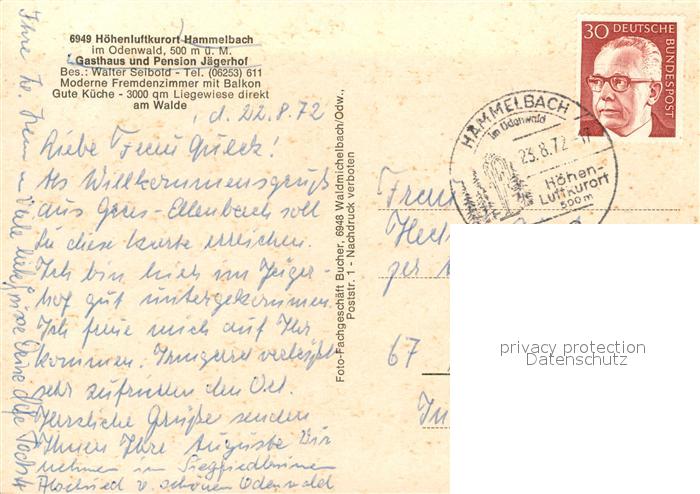 6949 Höhenluftkurort Hammelbach
im Odenwald, 500 m ü. M.
Gasthaus und Pension Jägerhof
Bes.: Walter Seibold - Tel. (06253) 611
Moderne Fremdenzimmer mit Balkon
Gute Küche - 3000 qm Liegewiese direkt
am Walde
, d. 22.8.72
Liebe Frau
Als Willkommensgruß
aus Gras-Ellenbach soll
Sie diese Karte erreichen.
Ich bin hier im Jäger-
hof gut untergekommen.
Ich freue mich auf Ihr
kommen. Irmgard verläßt
sehr zufrieden den Ort.
Herzliche Grüße senden
Ihnen Ihre Auguste Wir
nehmen im Siegfriedbrunnen
Abschied v. schönen Odenwald
Ihre
Viele liebe
Foto-Fachgeschäft Bucher, 6948 Waldmichelbach/Odw.,
Poststr. 1 - Nachdruck verboten
30 DEUTSCHE
BUNDESPOST
HAMMELBACH
im Odenwald
23.8.72-17
Höhen-
Luftkurort
500m
67
privacy protection
Datenschutz